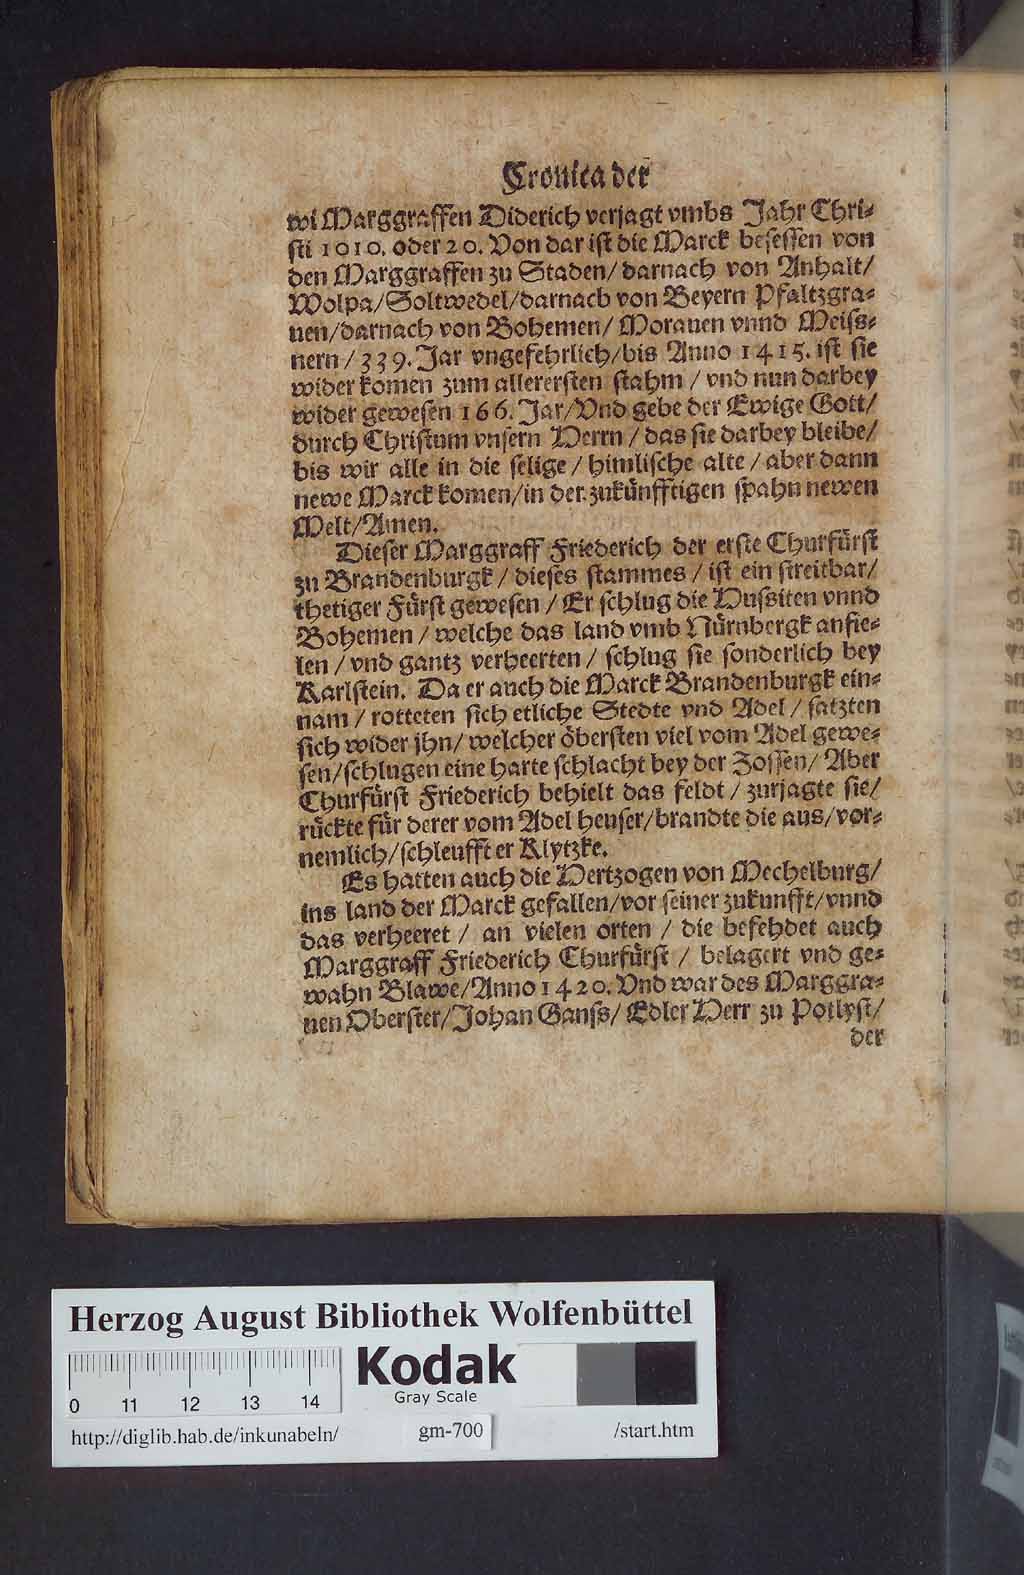 Cronica der
wi Marggraffen Diderich verjagt vmbs Jahr Chri-
sti 1010. oder 20. Von dar ist die Marck besessen von
den Marggraffen zu Staden/ darnach von Anhalt/
Wolpa/Soltwedel/darnach von Beyern Pfaltzgra-
uen/darnach von Bohemen/ Morauen vnnd Meiss-
nern/ 339. Jar vngefehrlich/bis Anno 1415. ist sie
wider komen zum allerersten stahm / vnd nun darbey
wider gewesen 166. Jar/Vnd gebe der Ewige Gott/
durch Christum vnsern Herrn / das sie darbey bleibe/
bis wir alle in die selige / himlische alte / aber dann
newe Marck komen/in der zukünfftigen spahn newen
Welt/Amen.
Dieser Marggraff Friederich der erste Churfürst
zu Brandenburgk / dieses stammes / ist ein streitbar/
thetiger Fürst gewesen / Er schlug die Hussiten vnnd
Bohemen / welche das land vmb Nürnbergk anfie-
len / vnd gantz verheerten / schlug sie sonderlich bey
Karlstein. Da er auch die Marck Brandenburgk ein-
nam / rotteten sich etliche Stedte vnd Adel / satzten
sich wider jhn/ welcher öbersten viel vom Adel gewe-
sen/schlugen eine harte schlacht bey der Zossen/ Aber
Churfürst Friederich behielt das feldt / zurjagte sie/
rückte für derer vom Adel heuser/brandte die aus/vor-
nemlich/schleufft er Klytzke.
Es hatten auch die Hertzogen von Mechelburg/
ins land der Marck gefallen/vor seiner zukunfft/vnnd
das verheeret / an vielen orten / die befehdet auch
Marggraff Friederich Churfürst / belagert vnd ge-
wahn Blawe/Anno 1420. Vnd war des Marggra-
uen Oberster/Johan Ganss/ Edler Herr zu Potlyst/
der
Herzog August Bibliothek Wolfenbüttel
0 11 12 13 14
Kodak
Gray Scale
http://diglib.hab.de/inkunabeln/ gm-700 /start.htm